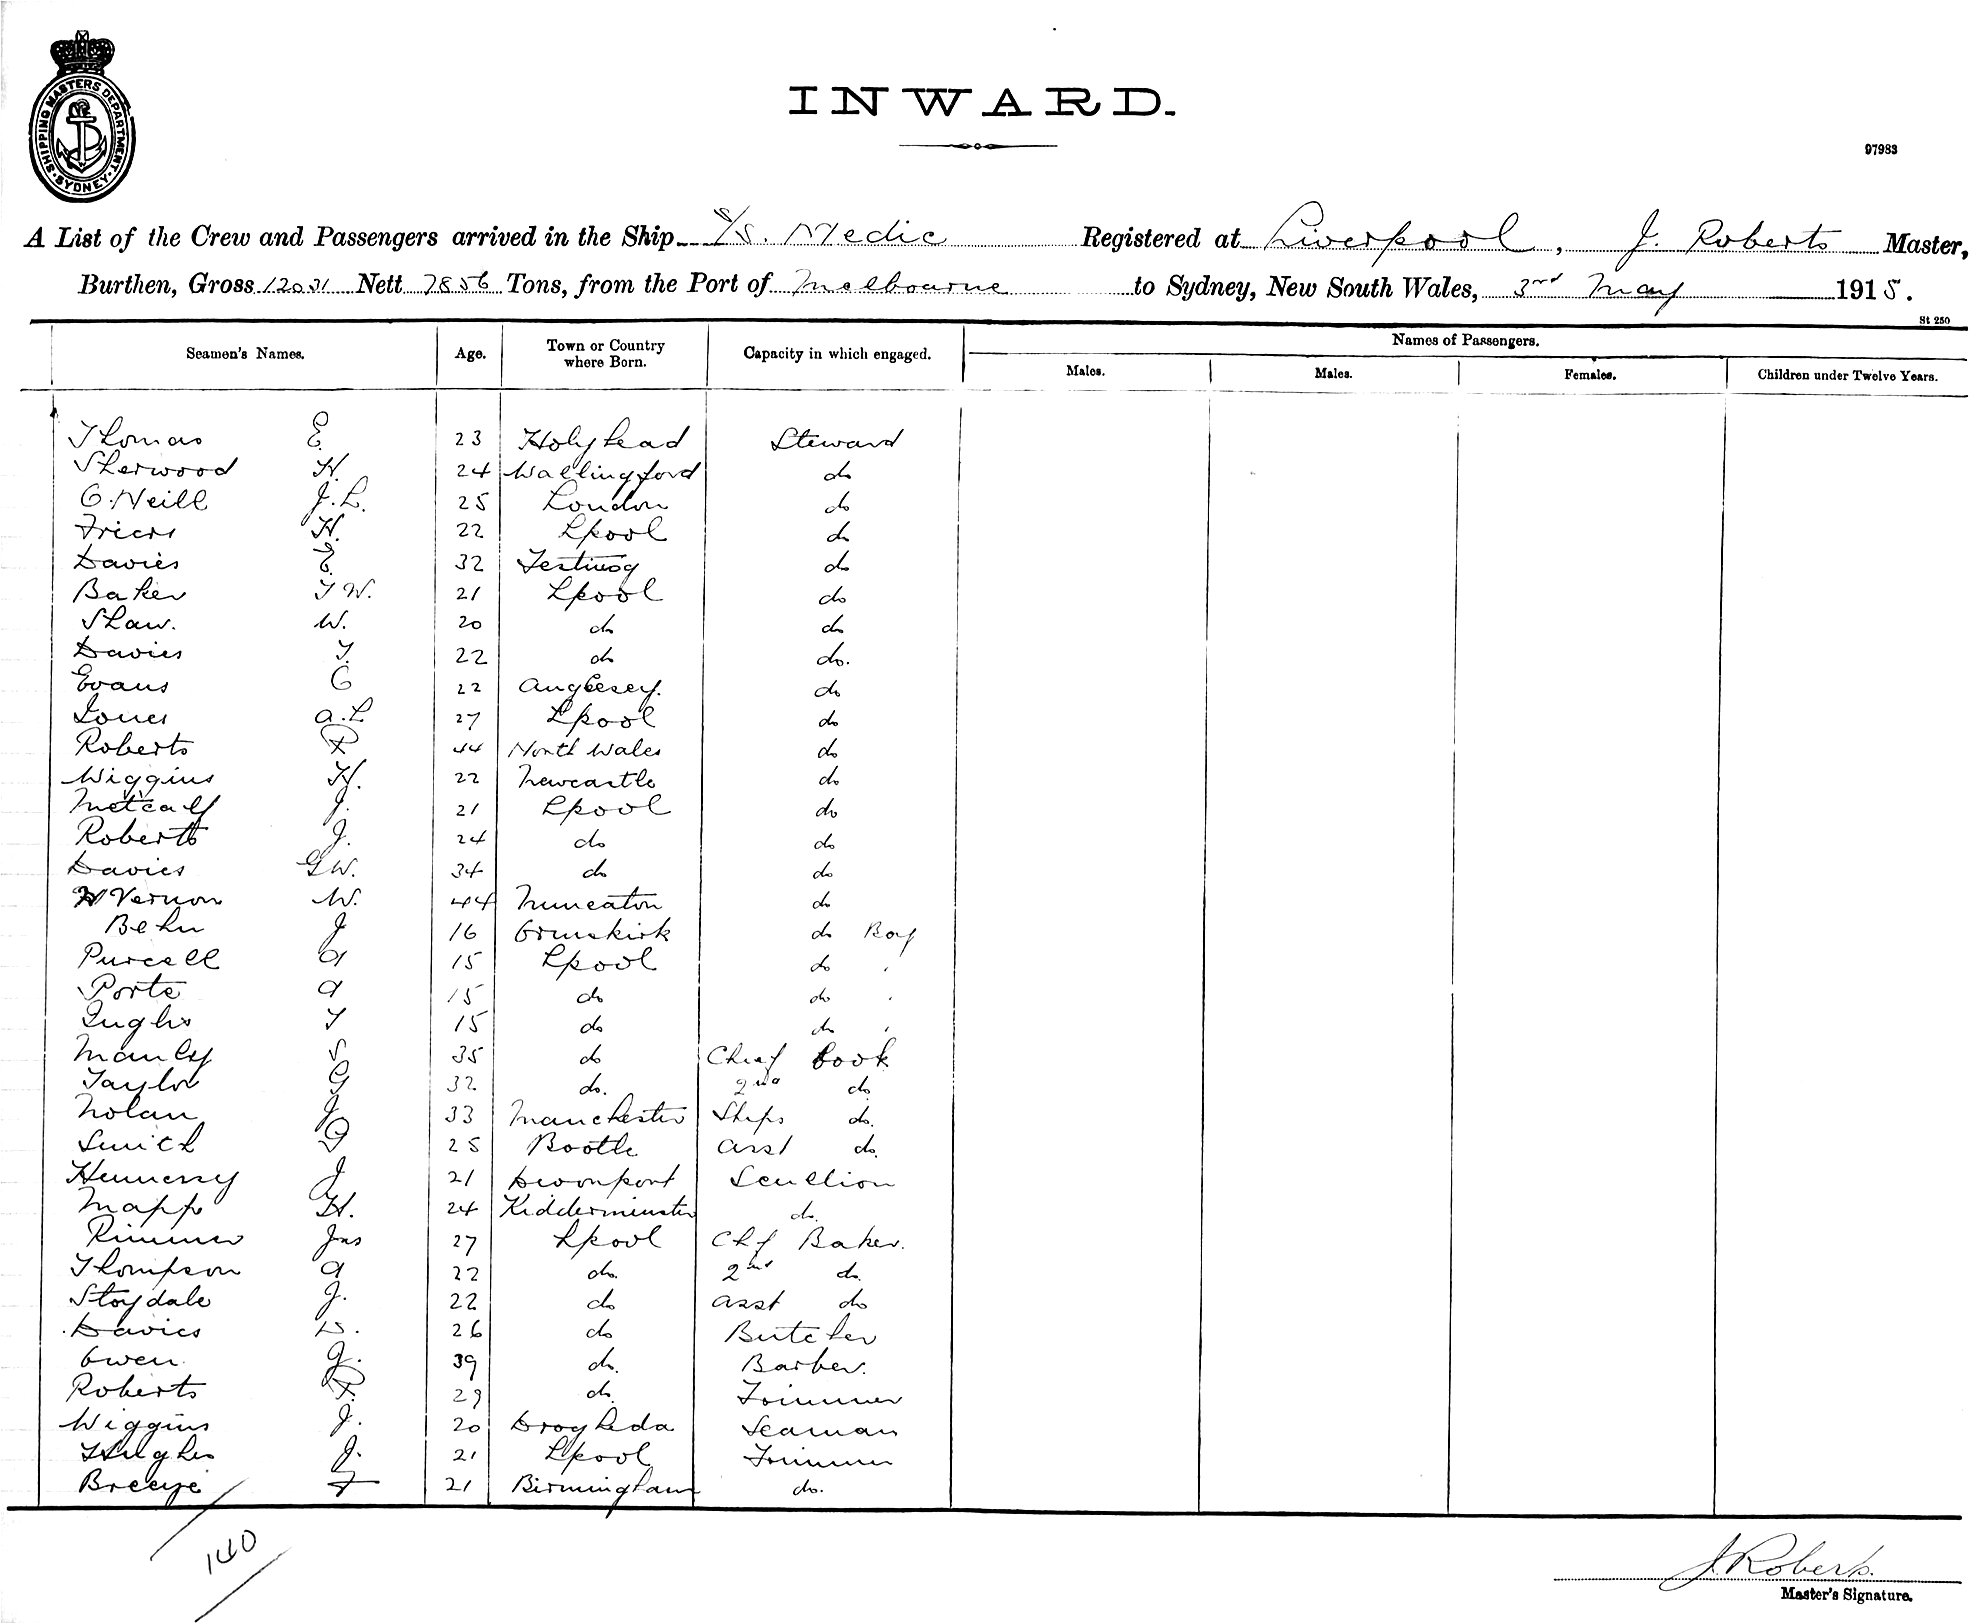 SHIPPING MASTERS DEPARTMENT
SYDNEY
INWARD.
97983
A List of the Crew and Passengers arrived in the Ship S/S. Medic Registered at Liverpool, J. Roberts Master,
Burthen, Gross 12031 Nett 7856 Tons, from the Port of Melbourne to Sydney, New South Wales, 3rd May 1915.
St 250
Seamen's Names. Age. Town or Country where Born. Capacity in which engaged. Names of Passengers.
Males. Males. Females. Children under Twelve Years.
Thomas E. 23 Holyhead Steward
Sherwood H. 24 Wallingford do
O'Neill J.L. 25 London do
H. 22 Lpool do
Davies E. 32 do
Baker T W. 21 Lpool do
Shaw. W. 20 do do
Davies T. 22 do do.
Evans C 22 Anglesey. do
Jones A.L 27 Lpool do
Roberts R 44 North Wales do
Wiggins H. 22 Newcastle do
Metcalf J. 21 Lpool do
Roberts J. 24 do do
Davies GW. 34 do do
Vernon W. 44 Nuneaton do
Behn J 16 Ormskirk do Boy
Purcell A 15 Lpool do "
Porte A 15 do do "
T 15 do do "
Manley S 35 do Chief Cook
Taylor G 32 do. 2nd do
Nolan J 33 Manchester Ships do.
Smith 25 Bootle Asst do.
Hennessy J 21 Devonport Scullion
Mapp H. 24 Kidderminster do.
Rimmer Jas 27 Lpool Chf Baker.
Thompson A 22 do. 2nd do.
Stoydale J. 22 do Asst do
Davies D. 26 do Butcher
Owen J. 39 do. Barber.
Roberts R. 29 do. Trimmer
Wiggins J. 20 Drogheda Seaman
Hughes J. 21 Lpool Trimmer
Breeze F 21 Birmingham do.
140
J. Roberts.
Master's Signature.